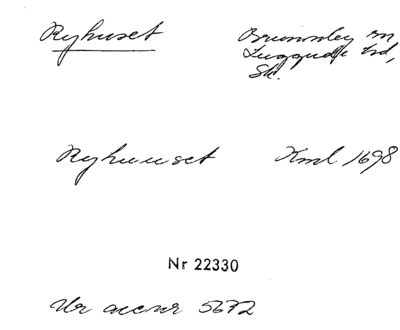 Ryhuset Brunnby sn
Luggude hd,
Sk.
Ryhuuset Kml 1698
Nr 22330
Ur accnr 5672